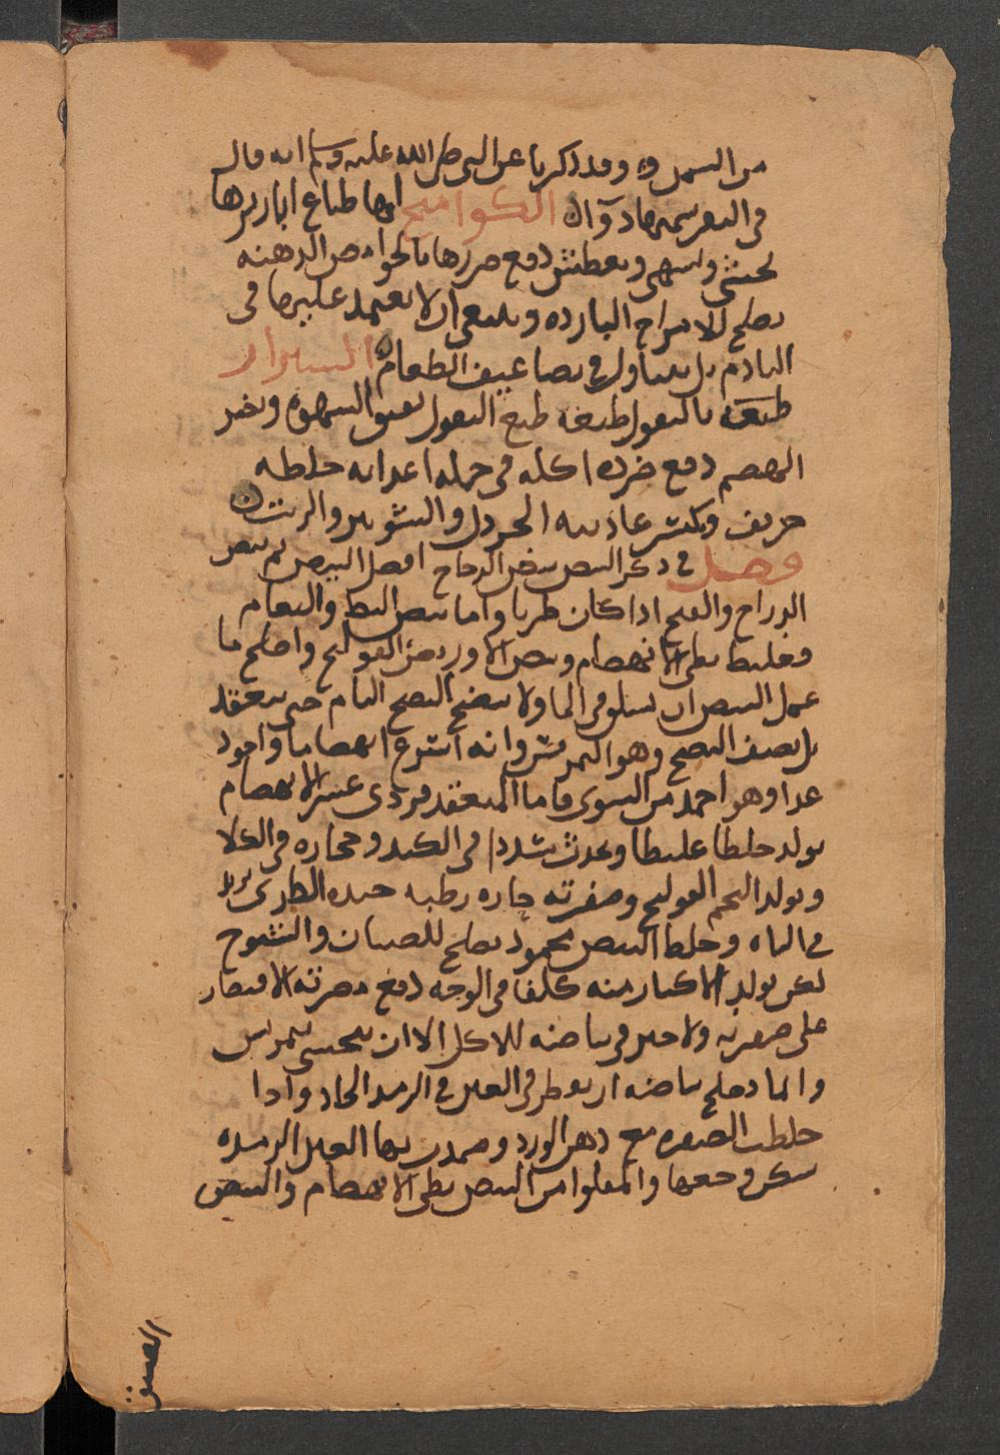 من السمن وقد ذكرنا عن النبي صلى الله عليه وسلم انه قال
في البقر سمنها دوآا الكواميخ انها طباع ابازيرها
تعطش دفع ضررها بالحوامض الدهنه
يصلح للامزاج البارده وينبغي ان لا يعتمد عليها في
التادم بل يتناول في تضاعيف الطعام
طبعه بالبقول طبعه طبع البقول الشهوه
الهضم دفع ضرره اكله في جمله اغذايه خلطه
حريف الخردل والشونيز والزيت
فصل في ذكر البيض بيض الدجاج افضل البيض ثم بيض
الدراج والقبج اذا كان طريا واما بيض البط والنعام
فغليظ بطي الانهضام وبيض الاوز القولنج واصلح ما
عمل البيض ان يسلق في الما ولا ينضج النضج التام حتى ينعقد
بل نصف النضج وهو النمرشت وانه اسرع انهضاما واجود
غدا وهو احمد من الشوي فاما المنعقد فردي عسر الانهضام
يولد خلطا غليظا ويحدث سددا في الكبد وحجاره في الكلا
ويولد التخم القولنج وصفرته حاره رطبه جيده الطري يزيد
في الباه وخلط البيض محمود يصلح للصبيان والشيوخ
لكن يولد الاكثار منه كلفا في الوجه دفع مضرته الاقتصار
على صفرته ولا خير في بياضه للاكل الا ان
وانما يصلح بياضه ان يقطر في العين في الرمد الحاد واذا
خلطت الصفره مع دهن الورد وضمدت بها العين الرمده
سكن وجعها والمقلوا من البيض بطي الانهضام والبيض